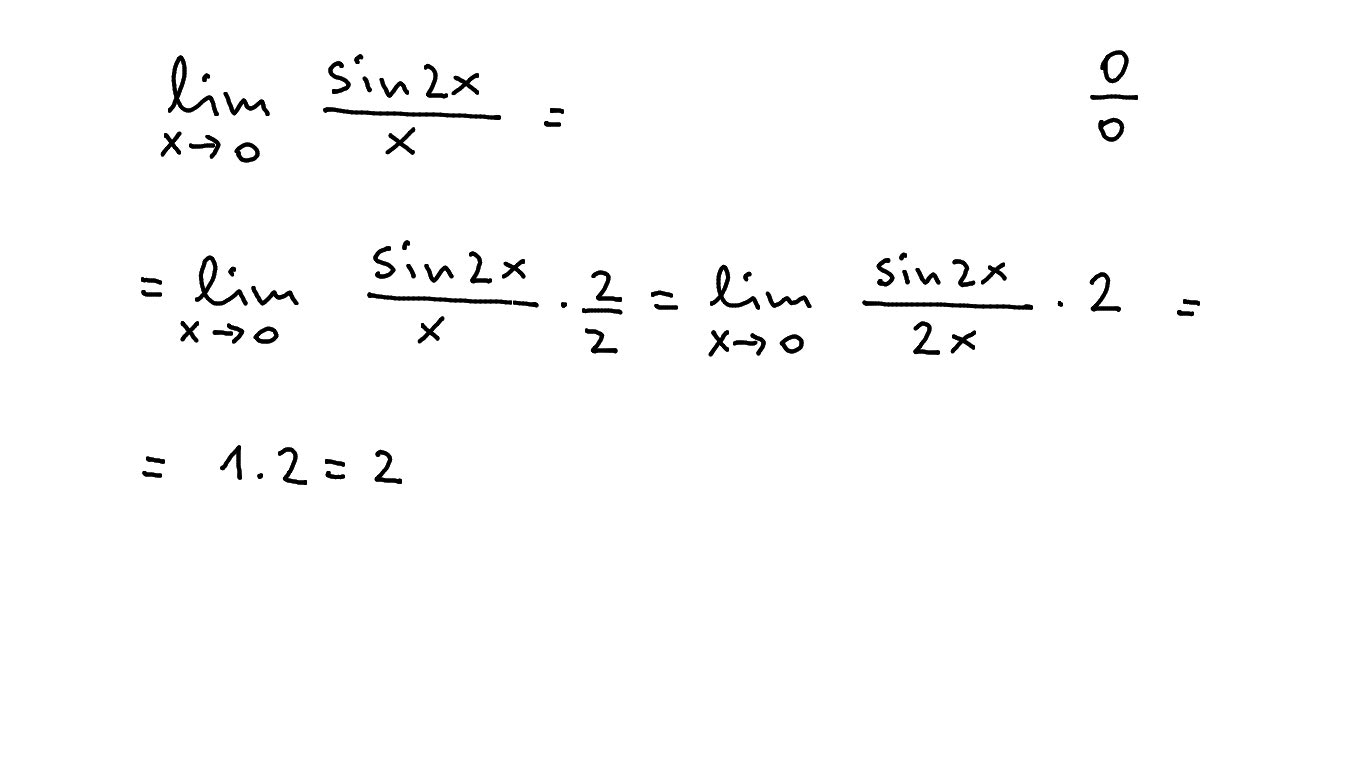 lim x→0 sin2x/x = 0/0
= lim x→0 sin2x/x · 2/2 = lim x→0 sin2x/2x · 2 =
= 1.2 = 2